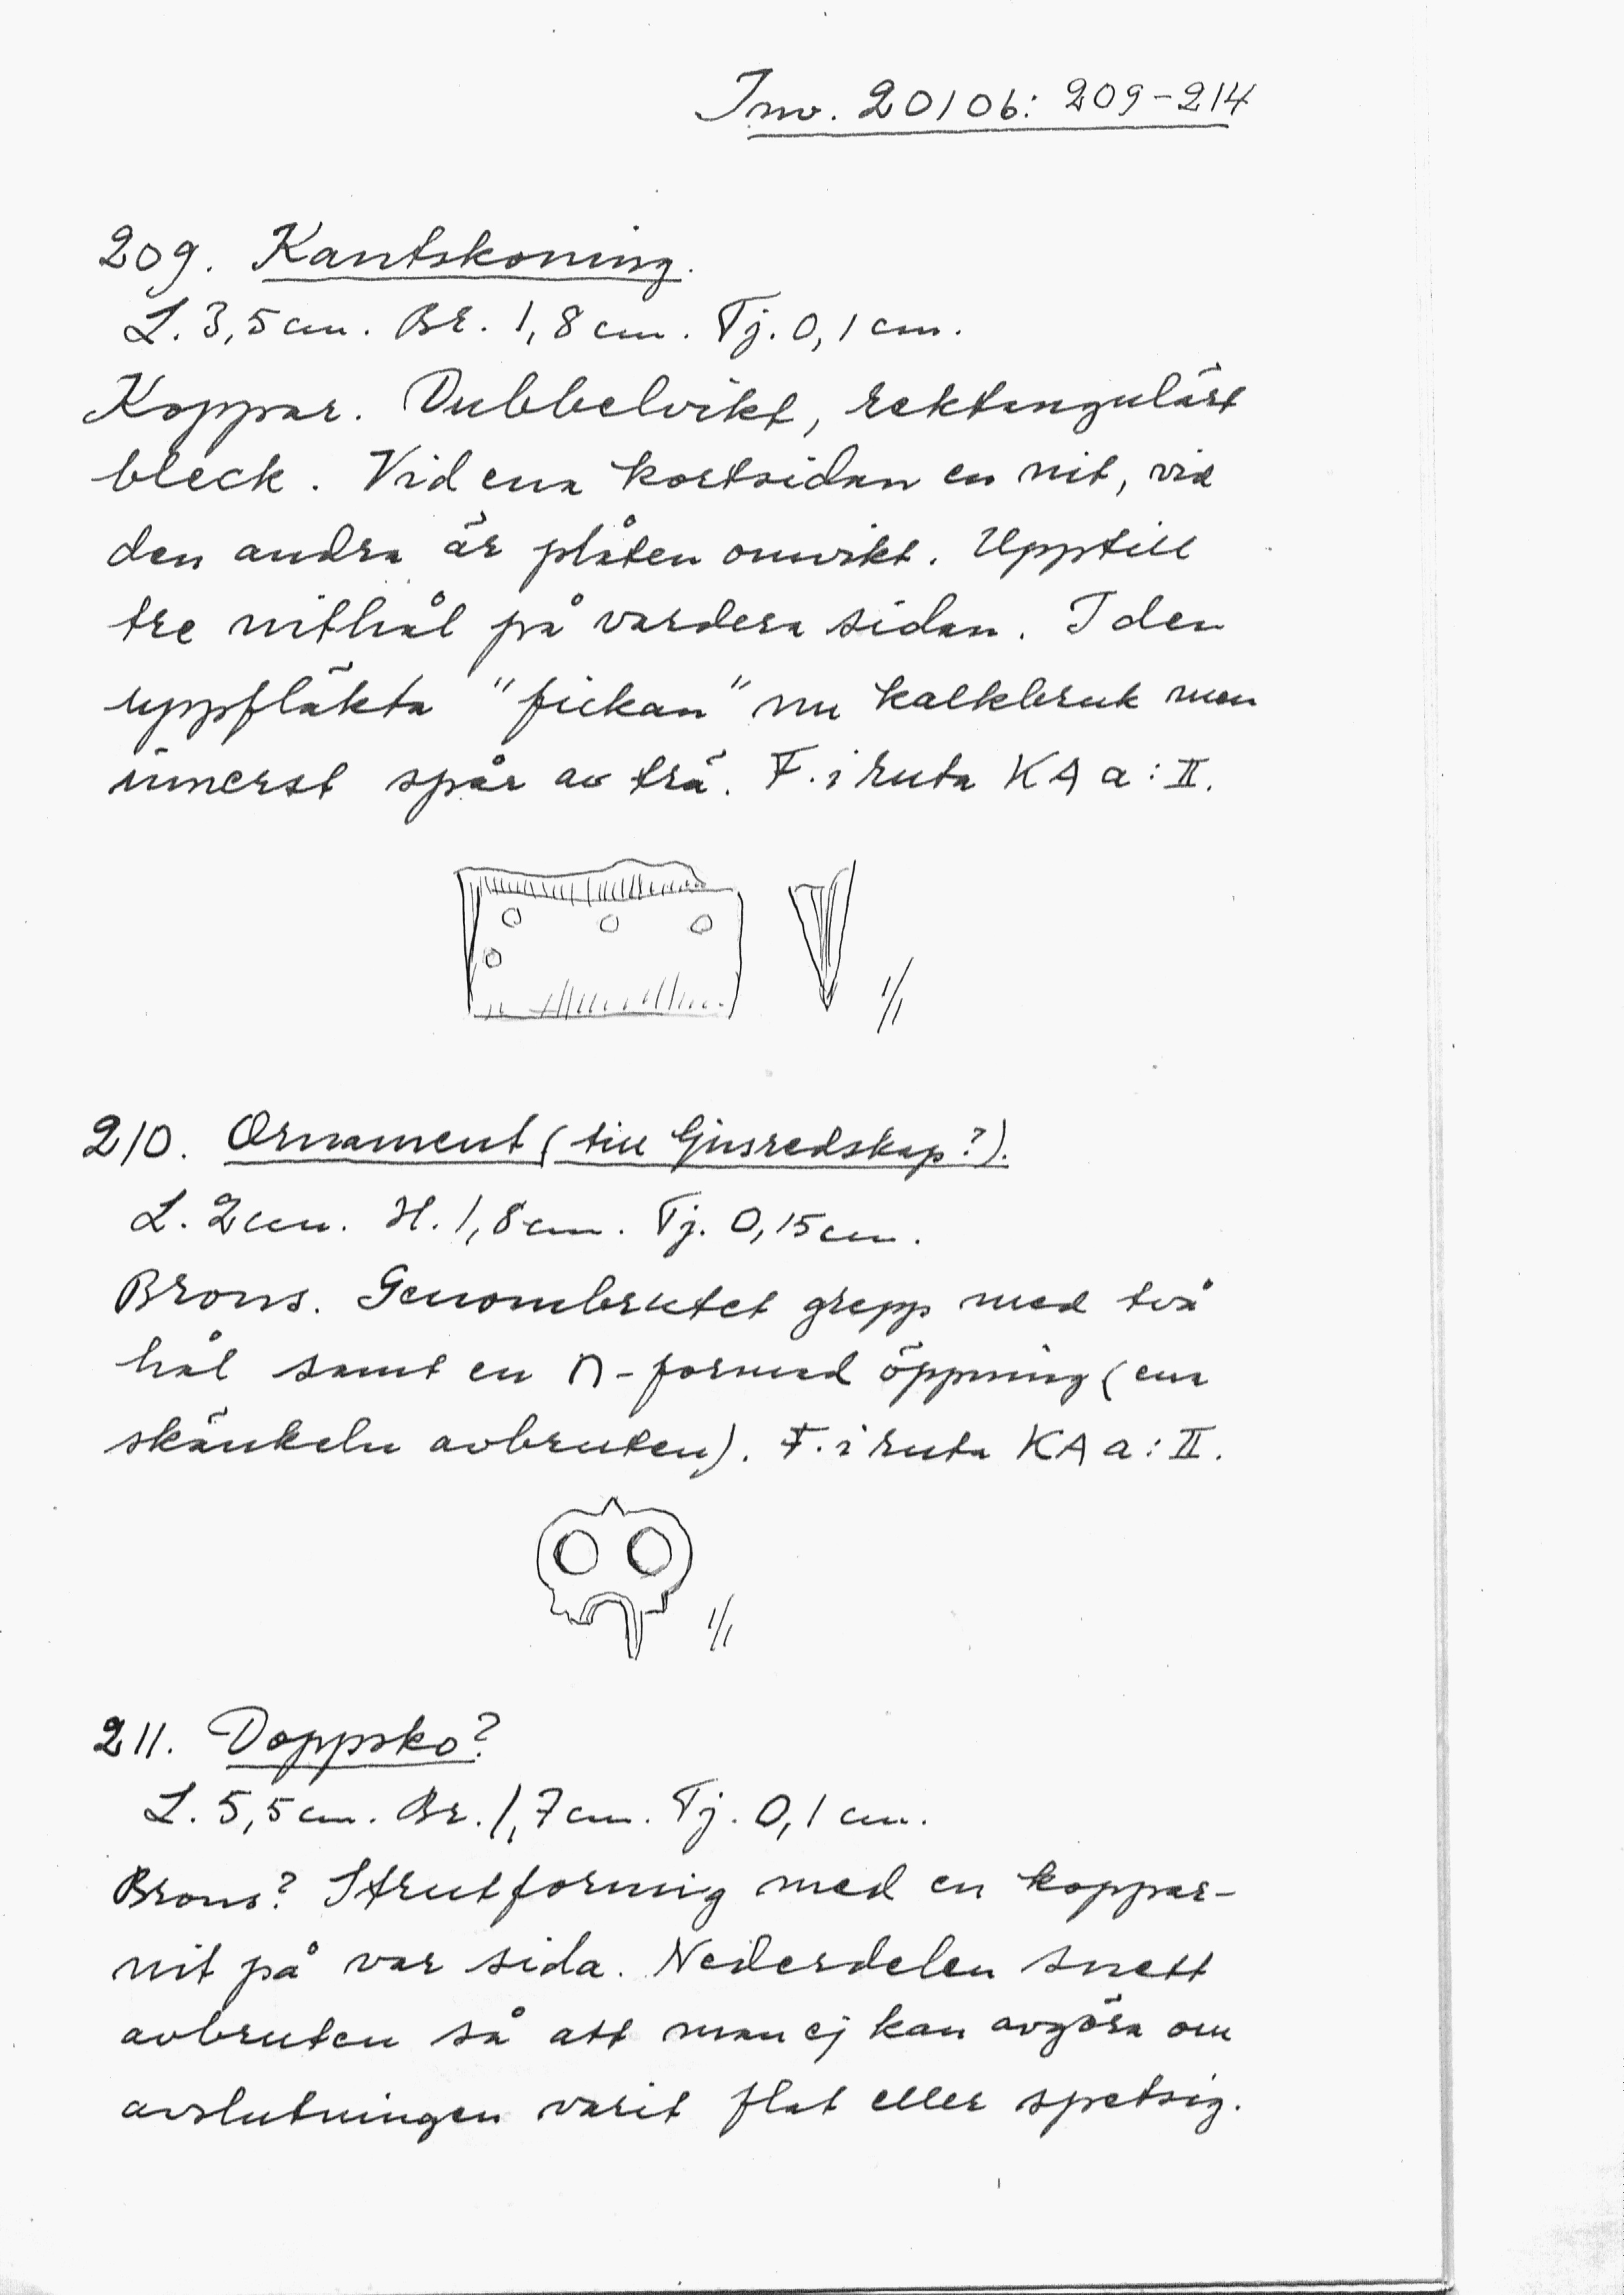 Inv. 20106: 209-214
209. Kantskoning.
L. 3,5 cm. Br. 1,8 cm. Tj. 0,1 cm.
Koppar. Dubbelvikt, rektangulärt
bleck. Vid ena kortsidan en nit, vid
den andra är plåten omvikt. Upptill
tre nithål på vardera sidan. I den
uppfläkta "fickan" nu kalkbruk men
innerst spår av trä. F. i ruta KA a: II.
1/1
210. Ornament (till ljusredskap?).
L. 2 cm. H. 1,8 cm. Tj. 0,15 cm.
Brons. Genombrutet grepp med två
hål samt en ∩-formad öppning (ena
skänkeln avbruten). F. i ruta KA a: II.
1/1
211. Doppsko?
L. 5,5 cm. Br. 1,7 cm. Tj. 0,1 cm.
Brons? Strutformig med en koppar-
nit på var sida. Nederdelen snett
avbruten så att man ej kan avgöra om
avslutningen varit flat eller spetsig.